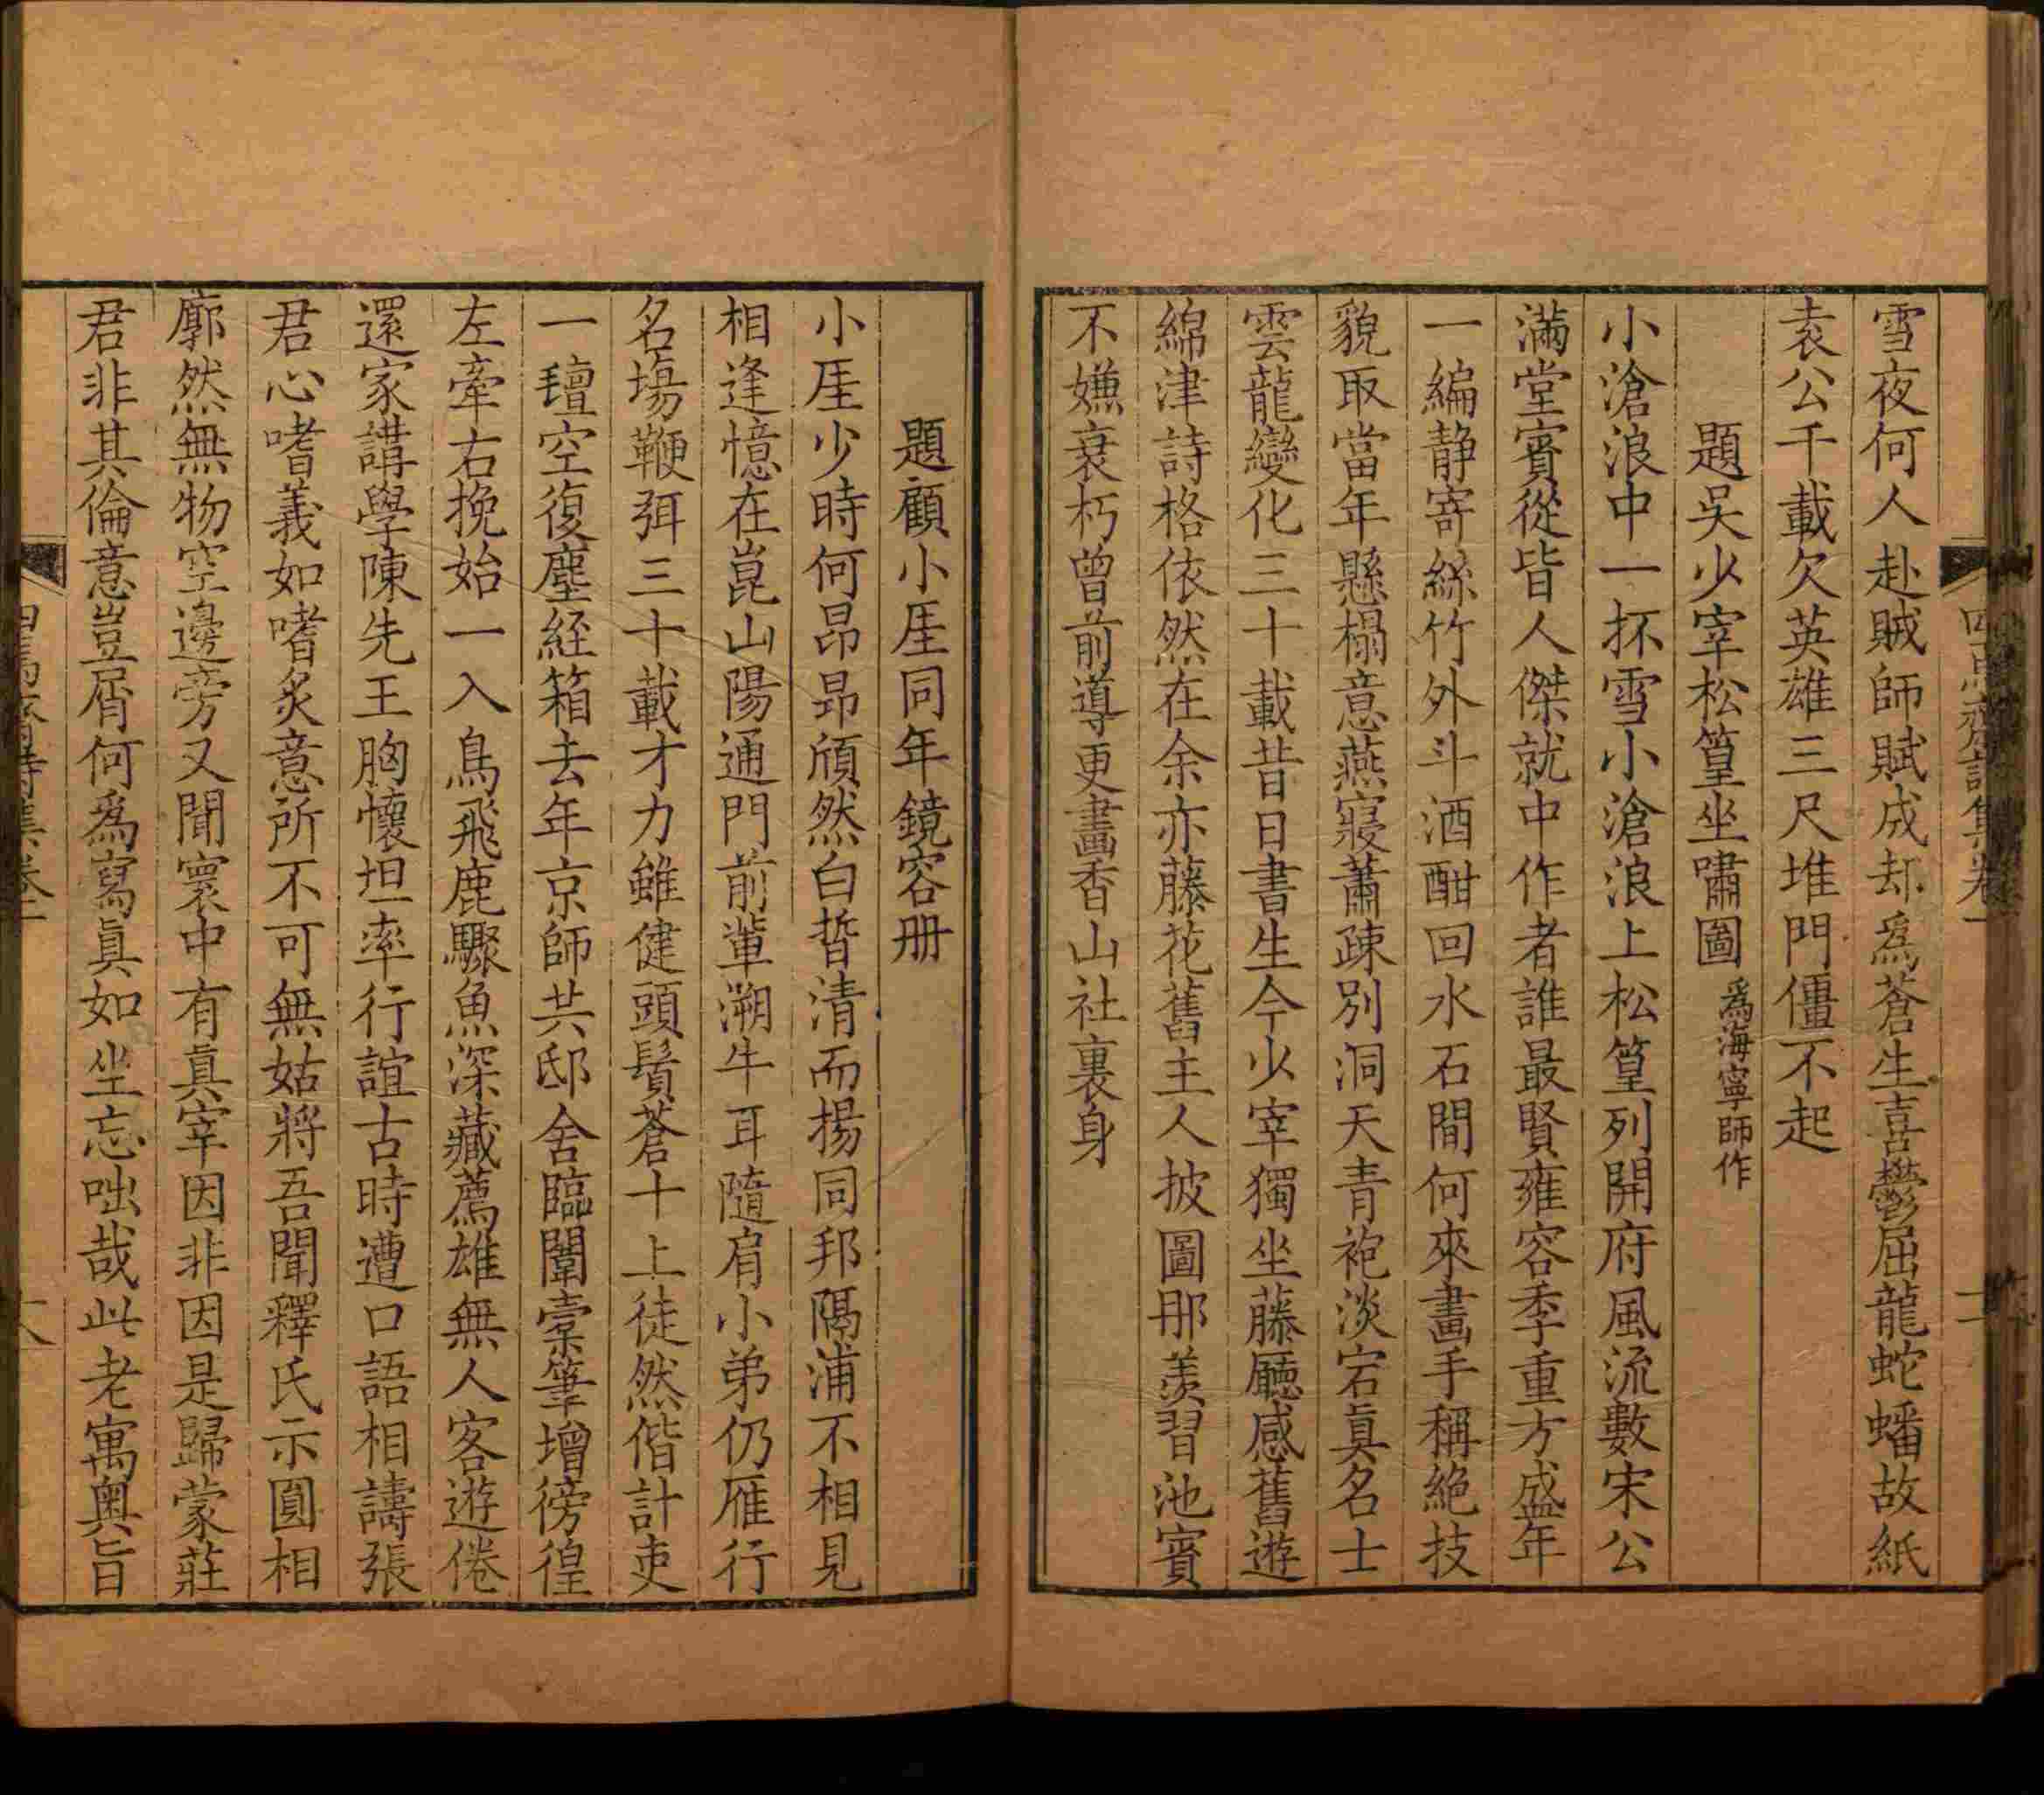 雪夜何人赴賊師賦成却爲蒼生喜鬱屈龍蛇蟠故紙
袁公千載欠英雄三尺堆門僵不起
題吳少宰松篁坐嘯圖爲海寧師作
小滄浪中一抔雪小滄浪上松篁列開府風流數宋公
滿堂賓從皆人傑就中作者誰最賢雍容季重方盛年
一編静寄絲竹外斗酒酣回水石間何來畫手稱絶技
貌取當年懸榻意燕寢蕭疎別洞天青袍淡宕眞名士
雲龍變化三十載昔日書生今少宰獨坐藤廳感舊遊
綿津詩格依然在余亦藤花舊主人披圖那羨習池賓
不嫌衰朽曾前導更畫香山社裏身
題顧小厓同年鏡容册
小厓少時何昂昂頎然白晳清而揚同邦隔浦不相見
相逢憶在崑山陽通門前輩溯牛耳隨肩小弟仍雁行
名場鞭弭三十載才力雖健頭鬢蒼十上徒然偕計吏
一氊空復塵經箱去年京師共邸舍臨闈槖筆增徬徨
左牽右挽始一入鳥飛鹿驟魚深藏薦雄無人客遊倦
還家講學陳先王胸懷坦率行誼古時遭口語相譸張
君心嗜義如嗜炙意所不可無姑將吾聞釋氏示圓相
廓然無物空邊旁又聞寰中有眞宰因非因是歸蒙莊
君非其倫意豈屑何爲寫眞如坐忘咄哉此老寓奥旨